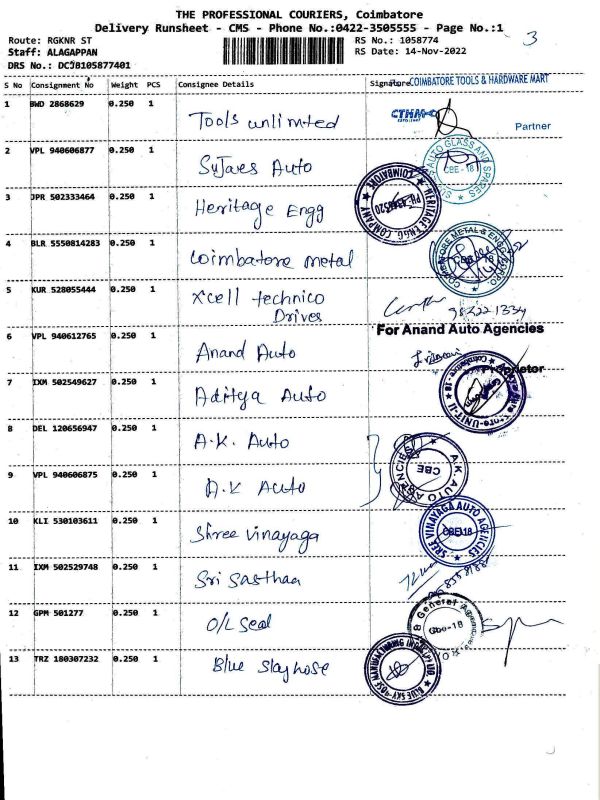 THE PROFESSIONAL COURIERS, Coimbatore
Delivery Runsheet - CMS - Phone No.:0422-3505555 - Page No.:1
Route: RGKNR ST RS No.: 1058774 3
Staff: ALAGAPPAN RS Date: 14-Nov-2022
DRS No.: DCJB105877401
S No Consignment No Weight PCS Consignee Details Signature
COIMBATORE TOOLS & HARDWARE MART
1 BWD 2868629 0.250 1
Tools unlimted Partner
2 VPL 940606877 0.250 1
Sujaes Auto AUTO GLASS AND SPARES CBE - 18
3 JPR 502333464 0.250 1
Heritage Engg HERITAGE ENGG. COMPANY COIMBATORE
4 BLR 5550814283 0.250 1
Coimbatore metal COIMBATORE METAL & ENGG CBE 18
5 KUR 528055444 0.250 1
Xcell technico
Drives
For Anand Auto Agencies
6 VPL 940612765 0.250 1
Anand Auto Proprietor
7 IXM 502549627 0.250 1
Aditya Auto UNIT-II
8 DEL 120656947 0.250 1
A.K. Auto A.K. AUTO AGENCIES CBE
9 VPL 940606875 0.250 1
A.K Auto
10 KLI 530103611 0.250 1
Shree Vinayaga SREE VINAYAGA AUTO AGENCIES CBE-18
11 IXM 502529748 0.250 1
Sri Sasthaa
12 GPM 501277 0.250 1
O/L Seal General Cbe-18
13 TRZ 180307232 0.250 1
Blue Skyhose BLUE SKY HOSE MANUFACTURING INDIA (P) LTD.